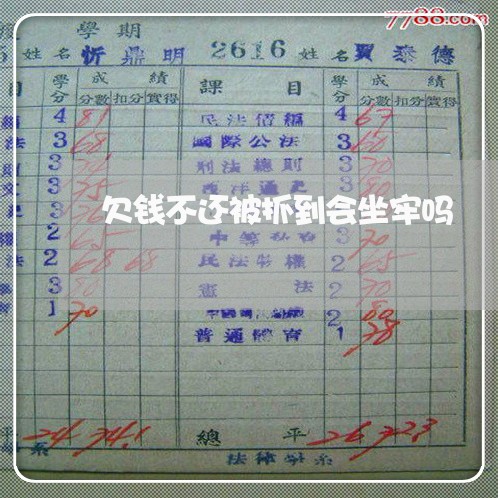 7788.com
學期
姓名 忻鼎明 2616 姓名 賈泰德
目 學分 成績 課目 學分 成績
分數 扣分 實得 分數 扣分 實得
4 81 民法債編 4 67
法 3 68 國際公法 3 60
3 刑法總則 3 70
3 75 西洋通史 3 80
欠钱不还被抓到会坐牢吗
2 65 3 70
法 2 68 68 民法物權 2 65
3 80 憲法 2 70
1 70 2 80
普通體育 1 78
平 24 74.1 總平 26 72.3
系 法律學系